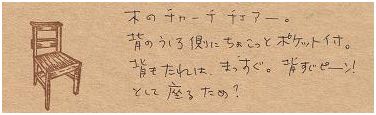 木のチャーチチェアー。
背のうしろ側にちょこっとポケット付。
背もたれは、まっすぐ。背すじピーン!
として座るため?